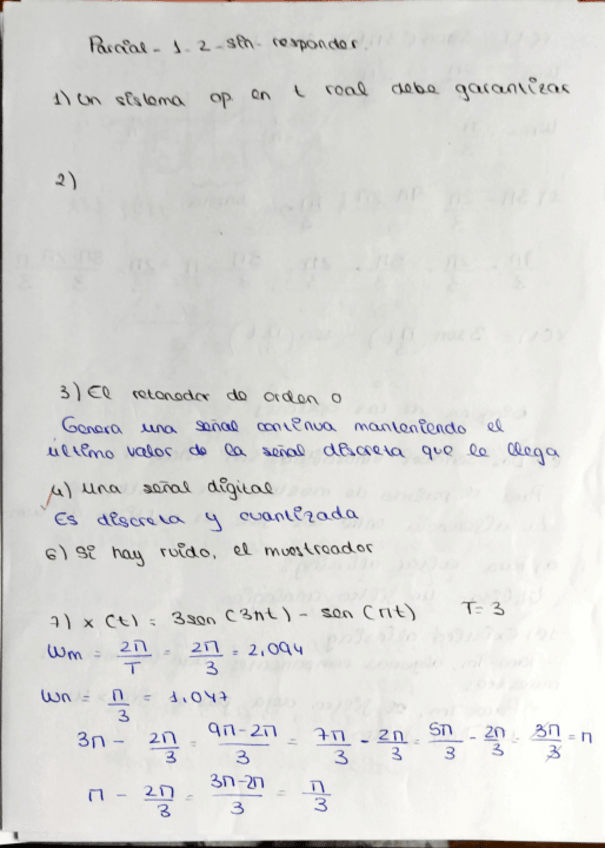 Parcial - 1 - 2 - sin - responder.
1) Un sistema op en t real debe garantizar
2)
3) El retenedor de orden 0
Genera una señal continua manteniendo el
último valor de la señal discreta que le llega
4) Una señal digital
Es discreta y cuantizada
6) Si hay ruido, el muestreador
7) x (t) = 3sen (3πt) - sen (πt) T= 3
Wm = 2π/T = 2π/3 = 2,094
Wn = π/3 = 1.047
3π - 2π/3 = 9π-2π/3 = 7π/3 - 2π/3 = 5π/3 - 2π/3 = 3π/3 = π
π - 2π/3 = 3π-2π/3 = π/3